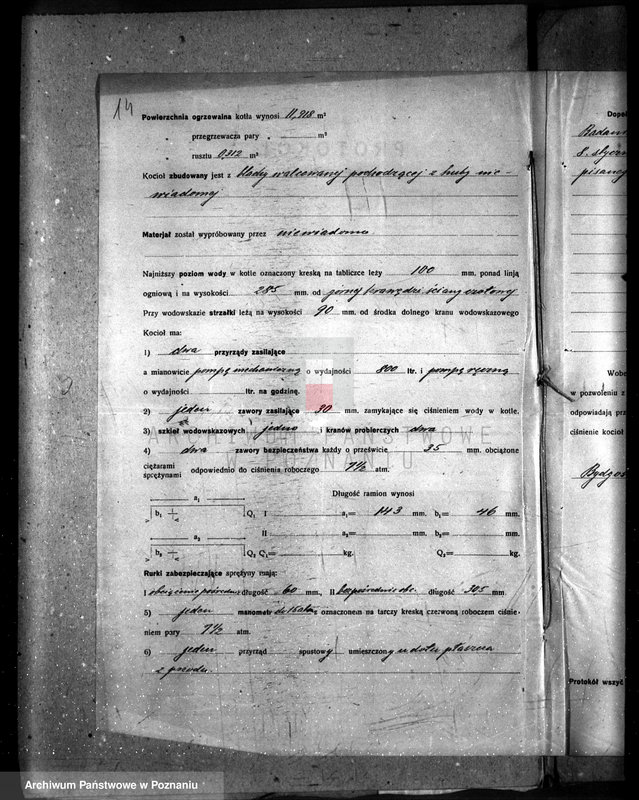 14
Powierzchnia ogrzewalna kotła wynosi 11,918 m²
„ przegrzewacza pary „ m²
„ rusztu 0,312 m²
Kocioł zbudowany jest z blachy walcowanej pochodzącej z huty nie-
wiadomej
Materjał został wypróbowany przez niewiadomo
Najniższy poziom wody w kotle oznaczony kreską na tabliczce leży 100 mm. ponad linją
ogniową i na wysokości 285 mm. od górnej krawędzi ściany czołowej
Przy wodowskazie strzałki leżą na wysokości 90 mm. od środka dolnego kranu wodowskazowego
Kocioł ma:
1) dwa przyrządy zasilające
a mianowicie pompę mechaniczną o wydajności 800 ltr. i pompę ręczną
o wydajności ltr. na godzinę.
2) jeden zawory zasilające 30 mm. zamykające się ciśnieniem wody w kotle.
3) szkieł wodowskazowych jedno i kranów probierczych dwa
4) dwa zawory bezpieczeństwa każdy o prześwicie 35 mm. obciążone
ciężarami
sprężynami odpowiednio do ciśnienia roboczego 7½ atm.
Długość ramion wynosi
a₁
b₁ Q₁ I a₁= 143 mm. b₁= 46 mm.
II a₂= mm. b₂= mm.
a₂
b₂ Q₂ Q₁= kg. Q₂= kg.
Rurki zabezpieczające sprężyny mają:
I obciążenie pośrednie długość 60 mm., II bezpośrednie obc. długość 305 mm.
5) jeden manometr do 15 atm z oznaczonem na tarczy kreską czerwoną roboczem ciśnie-
niem pary 7½ atm.
6) jeden przyrząd spustowy umieszczony u dołu płaszcza
z przodu.
Dopeł
Badani
8. stycz
pisaneg
Wobe
w pozwoleniu z
odpowiadają prz
ciśnienie kocioł
Bydgos
Protokół wszyć
ARCHIWUM PAŃSTWOWE
W POZNANIU
Archiwum Państwowe w Poznaniu